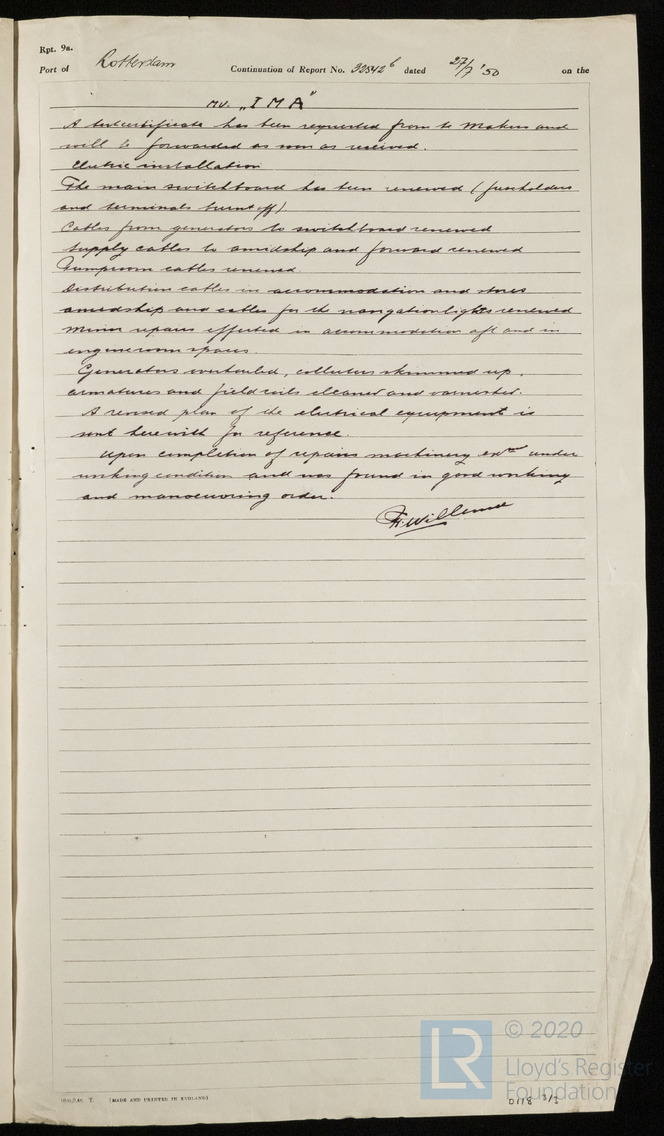 Rpt. 9a.
Port of Rotterdam Continuation of Report No. 32542 b dated 27/7 '50 on the
MV. „IMA"
A testcertificate has been requested from to Makers and
will be forwarded as soon as received.
Electric installation
The main switchboard has been renewed (fuseholders
and terminals burnt off)
Cables from generators to switchboard renewed
Supply cables to amidship and forward renewed
Pumproom cables renewed
Distribution cables in accommodation and stores
amidship and cables for the navigationlights renewed
Minor repairs effected in accommodation aft and in
engineroom spaces.
Generators overhauled, collectors skimmed up,
armatures and fieldcoils cleaned and varnished.
A revised plan of the electrical equipment is
sent herewith for reference.
Upon completion of repairs machinery exd under
working condition and was found in good working
and manoeuvring order.
H. Willemse
(MADE AND PRINTED IN ENGLAND)
LR
© 2020
Lloyd's Register
Foundation
0118 3/3